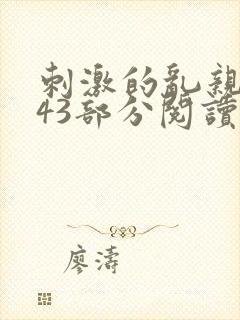 刺激的亂親
43部分閱讀
廖濤